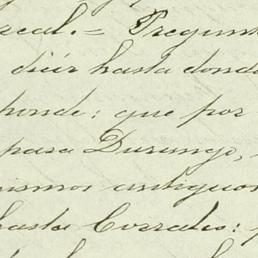 real. = Pregunt
diér hasta donde
ponde: que por
para Durango,
ismos antiguos
hasta Corrales: p